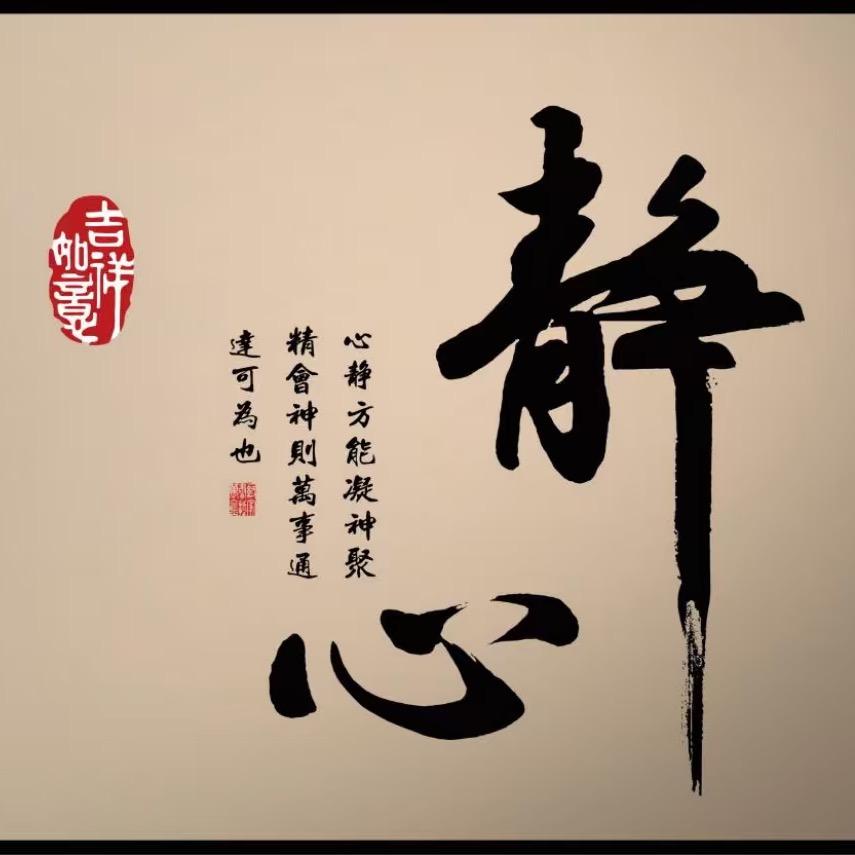 静
心
心静方能凝神聚
精會神則萬事通
達可為也
吉祥
如意